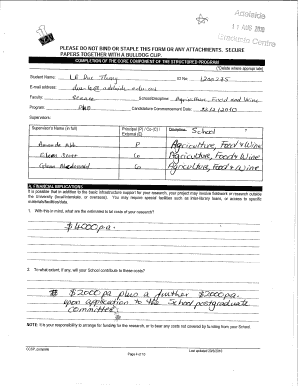 Adelaide
11 AUG 2010
Graduate Centre
PLEASE DO NOT BIND OR STAPLE THIS FORM OR ANY ATTACHMENTS. SECURE
PAPERS TOGETHER WITH A BULLDOG CLIP.
(*Delete where appropriate)
COMPLETION OF THE CORE COMPONENT OF THE STRUCTURED PROGRAM
Student Name: Le Duc Thang ID No: 1200225
E-mail address:
Faculty: Science School/Discipline: Agriculture, Food and Wine
Program: PhD Candidature Commencement Date:
Supervisors:
Supervisor's Name (in full) Principal (P) / Co (C) / External (E) Discipline School
P Agriculture, Food & Wine
Eileen Scott Co Agriculture, Food & Wine
Co Agriculture, Food & Wine
A. FINANCIAL IMPLICATIONS
It is possible that in addition to the basic infrastructure support for your research, your project may involve fieldwork or research outside
the University (local/interstate, or overseas). You may require special facilities such as inter-library loans, or access to specific
materials/facilities/data.
1. With this in mind, what are the estimated costs of your research?
$4000 pa.
2. To what extent, if any, will your School contribute to these costs?
$2000 pa plus a further $2000 pa
upon application to the School postgraduate
committee.
NOTE: It is your responsibility to arrange for funding for the research, or to bear any costs not covered by funding from your School.
Page 4 of 10
Last updated 20/5/2010